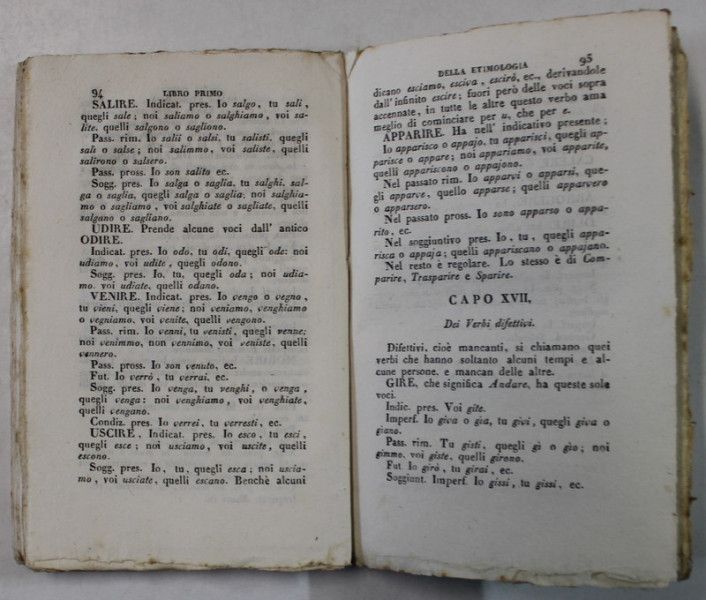 94 LIBRO PRIMO
SALIRE. Indicat. pres. Io salgo, tu sali,
quegli sale; noi saliamo o salghiamo, voi sa-
lite, quelli salgono o sagliono.
Pass. rim. Io salii o salsi, tu salisti, quegli
salì o salse; noi salimmo, voi saliste, quelli
salirono o salsero.
Pass. pross. Io son salito ec.
Sogg. pres. Io salga o saglia, tu salghi, sal-
ga o saglia, quegli salga o saglia; noi salghia-
mo o sagliamo, voi salghiate o sagliate, quelli
salgano o sagliano.
UDIRE. Prende alcune voci dall' antico
ODIRE.
Indicat. pres. Io odo, tu odi, quegli ode: noi
udiamo, voi udite, quelli odono.
Sogg. pres. Io, tu, quegli oda; noi udia-
mo, voi udiate, quelli odano.
VENIRE. Indicat. pres. Io vengo o vegno,
tu vieni, quegli viene; noi veniamo, venghiamo
o vegniamo, voi venite, quelli vengono.
Pass. rim. Io venni, tu venisti, quegli venne;
noi venimmo, non vennimo, voi veniste, quelli
vennero.
Pass. pross. Io son venuto, ec.
Fut. Io verrò, tu verrai, ec.
Sogg. pres. Io venga, tu venghi, o venga,
quegli venga: noi venghiamo, voi venghiate,
quelli vengano.
Condiz. pres. Io verrei, tu verresti, ec.
USCIRE, Indicat. pres. Io esco, tu esci,
quegli esce; noi usciamo, voi uscite, quelli
escono.
Sogg. pres. Io, tu, quegli esca; noi uscia-
mo, voi usciate, quelli escano. Benchè alcuni
DELLA ETIMOLOGIA 95
dicano esciamo, esciva, escirò, ec., derivandole
dall' infinito escire; fuori però delle voci sopra
accennate, in tutte le altre questo verbo ama
meglio di cominciare per u, che per e.
APPARIRE. Ha nell' indicativo presente;
Io apparisco o appajo, tu apparisci, quegli ap-
parisce o appare; noi appariamo, voi apparite,
quelli appariscono o appajono.
Nel passato rim. Io apparvi o apparsi, que-
gli apparve, quello apparse; quelli apparvero
o apparsero.
Nel passato pross. Io sono apparso o appa-
rito, ec.
Nel soggiuntivo pres. Io, tu, quegli appa-
risca o appaja; quelli appariscano o appajano.
Nel resto è regolare. Lo stesso è di Com-
parire, Trasparire e Sparire.
CAPO XVII.
Dei Verbi difettivi.
Difettivi, cioè mancanti, si chiamano quei
verbi che hanno soltanto alcuni tempi e al-
cune persone, e mancan delle altre.
GIRE, che significa Andare, ha queste sole
voci.
Indic. pres. Voi gite.
Imperf. Io giva o gia, tu givi, quegli giva o
giano.
Pass. rim. Tu gisti, quegli gì o gio; noi
gimmo, voi giste, quelli girono.
Fut. Io girò, tu girai, ec.
Soggiunt. Imperf. Io gissi, tu gissi, ec.